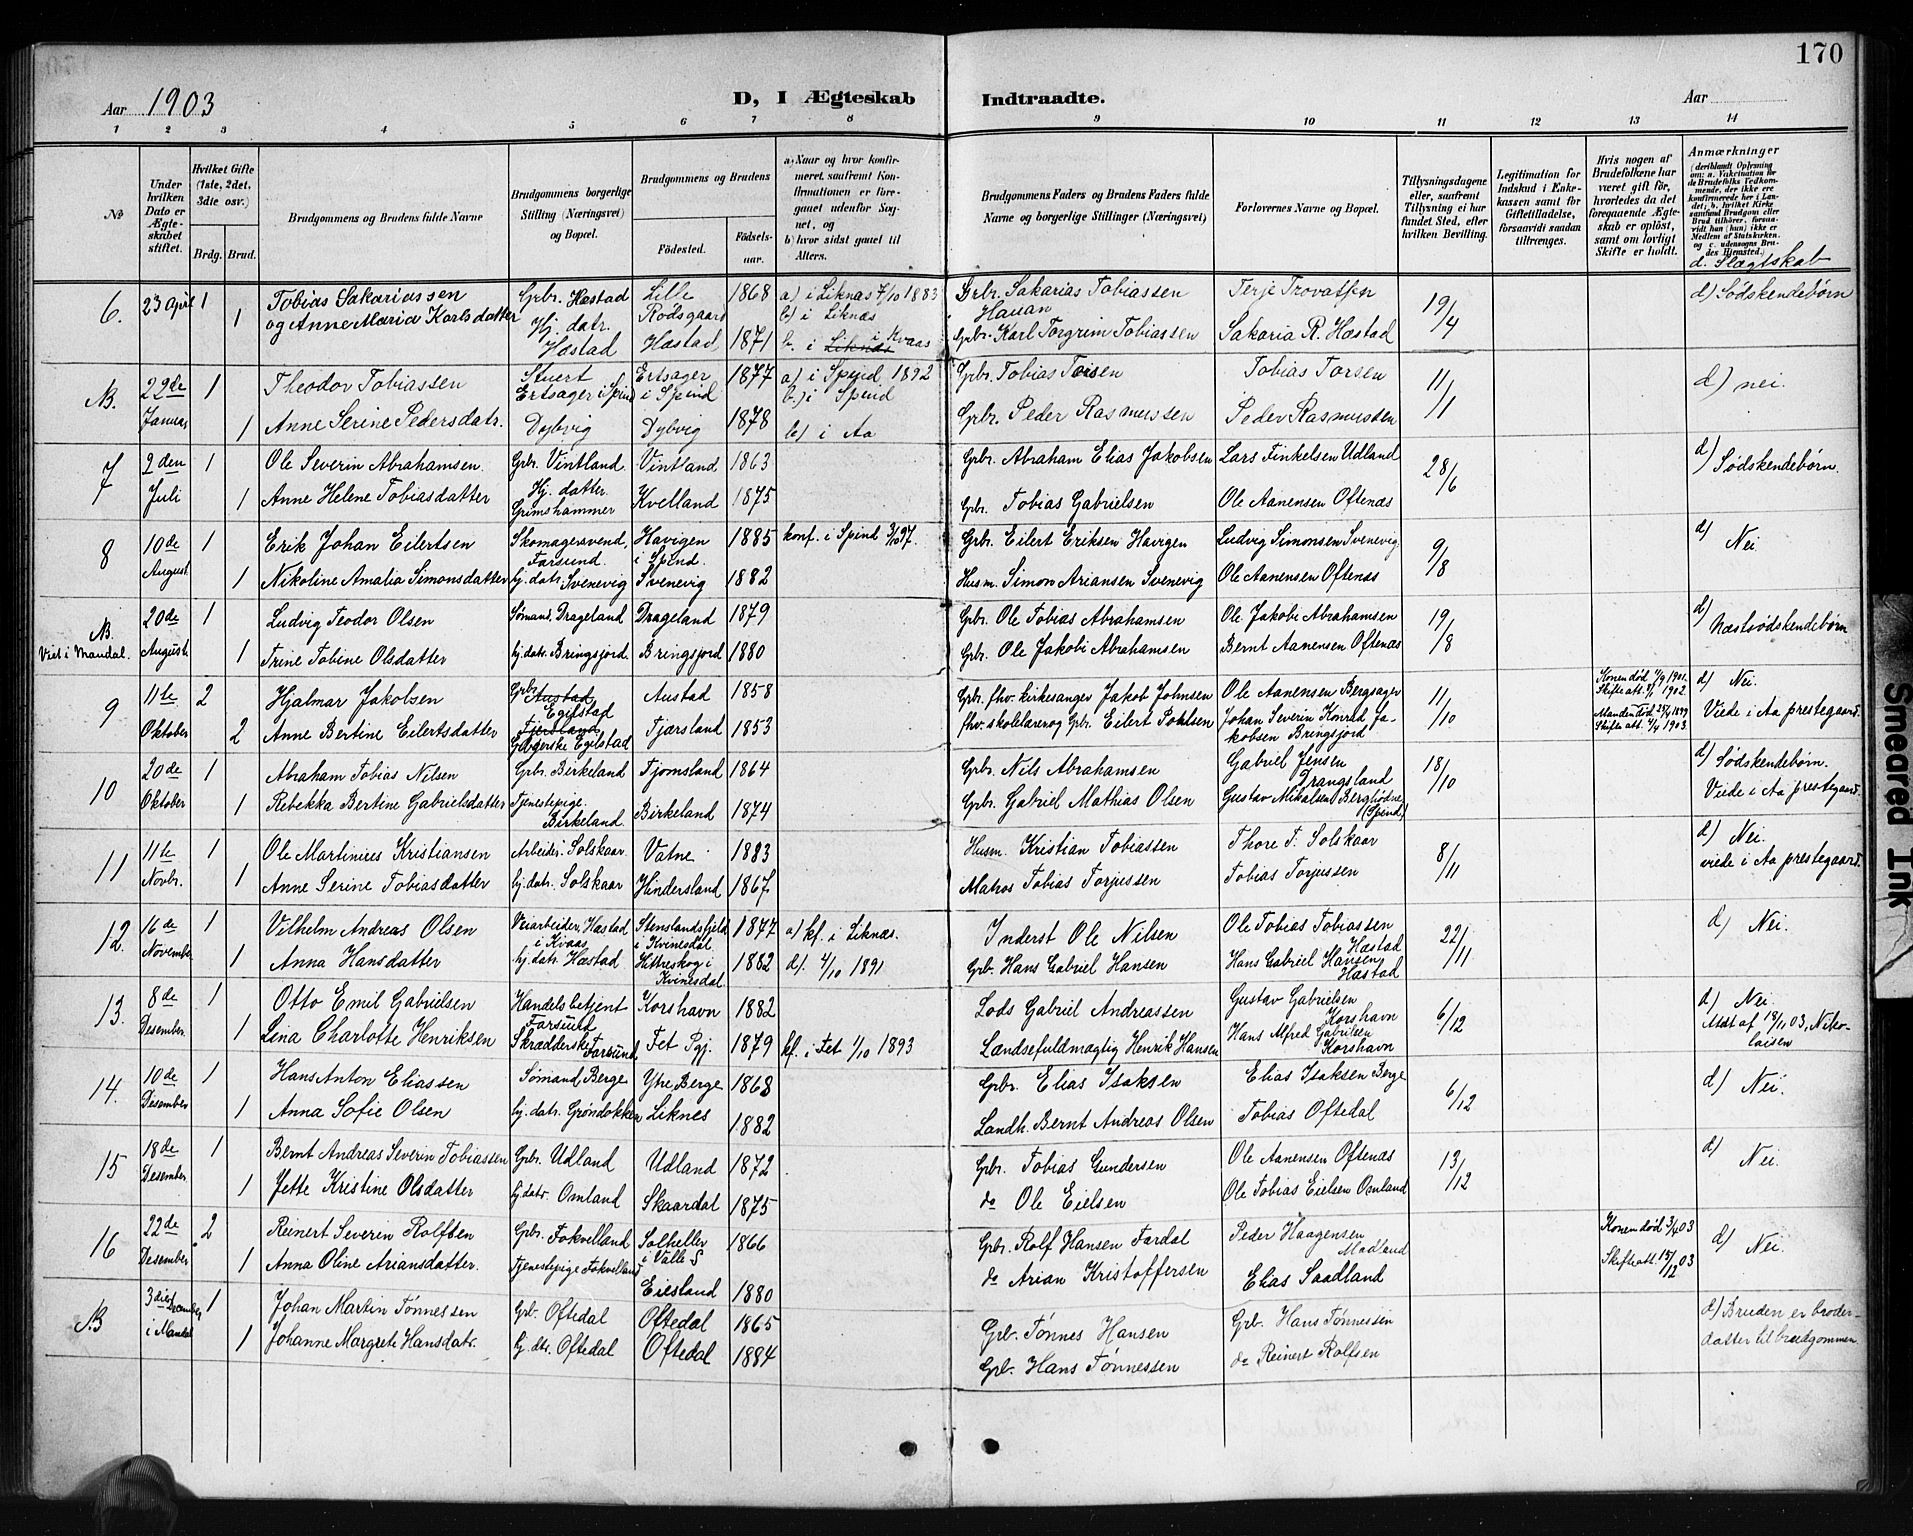 170
Aar 1903
D, I Ægteskab Indtraadte.
Aar
1 2 3 4 5 6 7 8 9 10 11 12 13 14
№
Under hvilken Dato er Ægteskabet stiftet.
Hvilket Gifte (1ste, 2det, 3die osv.)
Brdg. Brud.
Brudgommens og Brudens fulde Navne
Brudgommens borgerlige Stilling (Næringsvei) og Bopæl.
Brudgommens og Brudens
Fødested. Fødselsaar.
a) Naar og hvor konfirmeret, saafremt Konfirmationen er foregaaet udenfor Sognet, og
b) hvor sidst gaaet til Alters.
Brudgommens Faders og Brudens Faders fulde Navne og borgerlige Stillinger (Næringsvei)
Forlovernes Navne og Bopæl.
Tillysningsdagene eller, saafremt Tillysning ei har fundet Sted, efter hvilken Bevilling.
Legitimation for Indskud i Enkekassen samt for Giftetilladelse, forsaavidt saadan tiltrænges.
Hvis nogen af Brudefolkene har været gift før, hvorledes da det foregaaende Ægteskab er opløst, samt om lovligt Skifte er holdt.
Anmærkninger
(deriblandt Oplysning om: a. Vakcination for de Brudefolks Vedkommende, der ikke ere konfirmerede her i Landet; b. hvilket Kirkesamfund Brudgom eller Brud tilhører, forsaavidt han (hun) ikke er Medlem af Statskirken, og c. udensogns Brudes Hjemsted.)
d. Slægtskab
6. 23 April 1 Tobias Sakariassen Grbr. Hæstad Lille Rødsgaard 1868 a) i Liknæs 7/10 1883 b) i Liknæs Grbr. Sakarias Tobiassen Hauan Terje Trovatsen 19/4 d) Sødskendebørn
1 og Anne Maria Karlsdatter Hj. datr. Hæstad Hæstad 1871 b. i Liknæs i Kvaas Grbr. Karl Torgrim Tobiassen Sakaria R. Hæstad
NB. 22de Januar 1 Theodor Tobiassen Stuert Ertsager i Spind Ertsager i Spind 1877 a) i Spind 1892 b.) i Spind Grbr. Tobias Torsen Tobias Torsen 11/1 d) nei.
1 Anne Serine Pedersdatr. Dybvig Dybvig 1878 b) i Aa Grbr. Peder Rasmussen Peder Rasmussen
7 2den Juli 1 Ole Severin Abrahamsen. Grbr. Vintland. Vintland 1863 Grbr. Abraham Elias Jakobsen Lars Finkelsen Udland 28/6 d) Sødskendebørn.
1 Anne Helene Tobiasdatter Hj. datter Grimshammer Kvelland 1875 Grbr. Tobias Gabrielsen Ole Aanensen Oftenæs
8 10de August 1 Erik Johan Eilertsen Skomagersvend, Farsund. Havigen i Spind. 1885 konf. i Spind 3/10 97. Grbr. Eilert Eriksen Havigen Ludvig Simonsen Svenevig 9/8 d) Nei
1 Nikoline Amalia Simonsdatter hj. datr. Svenevig Svenevig 1882 Husm. Simon Ariansen Svenevig Ole Aanensen Oftenæs
NB. Viet i Mandal. 20de August 1 Ludvig Teodor Olsen Sømand, Drageland Drageland 1879 Grbr. Ole Tobias Abrahamsen Ole Jakobi Abrahamsen 19/8 d) Næstsødskendebørn
1 Trine Tobine Olsdatter hj. datr. Bringsjord. Bringsjord 1880 Grbr. Ole Jakobi Abrahamsen Bernt Aanensen Oftenæs
9 11te Oktober 2 Hjalmar Jakobsen Grbr. Austad Egilstad Austad 1858 Grbr. fhv. kirkesanger Jakob Johnsen Ole Aanensen Bergsager 11/10 Konen død 1901. Skifteatt. 1902. d) Nei.
2 Anne Bertine Eilertsdatter Fjersland Gbrgerske Egilstad Fjærsland 1853 fhv. skolelærer og Grbr. Eilert Pohlsen Johan Severin Konrad Jakobsen Bringsjord Manden død 1899 Skifteatt. 1903. Viede i Aa prestegaard.
10 20de Oktober 1 Abraham Tobias Nilsen Grbr. Birkeland Fjomsland 1864 Grbr. Nils Abrahamsen Gabriel Jensen Trangsland 18/10 d) Sødskendebørn.
1 Rebekka Bertine Gabrielsdatter Tjenestepige. Birkeland. Birkeland 1874 Grbr. Gabriel Mathias Olsen Gustav Mikalsen (Spind) Viede i Aa prestegaard.
11 11te Novbr. 1 Ole Martinius Kristiansen Arbeider. Solskaar Vatne 1883 Husm. Kristian Tobiassen Thore T. Solskaar 8/11 d) Nei.
1 Anne Serine Tobiasdatter hj. datr. Solskaar Hindersland 1867 Matros Tobias Torjussen Tobias Torjussen viede i Aa prestegaard.
12. 16de November 1 Vilhelm Andreas Olsen Veiarbeider, Hæstad i Kvaas Stenslandsfjeld i Kvinesdal 1847 a) kf. i Liknæs. Inderst Ole Nilsen Ole Tobias Tobiassen Hæstad 22/11 d) Nei.
1 Anna Hansdatter hj. datr. Hæstad Hittreskog i Kvinesdal 1882 d). 4/10 1891 Grb. Hans Gabriel Hansen Hans Gabriel Hansen Hæstad
13. 8de Desember. 1 Otto Emil Gabrielsen Handelsbetjent Farsund Korshavn 1882 Lods Gabriel Andreassen Gustav Gabrielsen Korshavn 6/12 d) Nei.
1 Lina Charlotte Henriksen Skrædderske Farsund. Fet Pgj. 1879 kf. i Fet 1/10 1893 Lændsefuldmægtig Henrik Hansen Hans Alfred Gabrielsen Korshavn Att. af 18/11 03, Nikolaisen
14. 10de Desember 1 Hans Anton Eliassen Sømand Berge Ytre Berge 1868 Grbr. Elias Isaksen Elias Isaksen Berge 6/12 d) Nei.
1 Anna Sofie Olsen hj. datr. Grøndokken Liknes 1882 Landh. Bernt Andreas Olsen Tobias Oftedal
15 18de Desember 1 Bernt Andreas Severin Tobiassen Grbr. Udland Udland 1872 Grbr. Tobias Gundersen Ole Aanensen Oftenæs 13/12 d) Nei.
1 Jette Kristine Olsdatter hj datr. Omland Skaardal 1875 do Ole Eielsen Ole Tobias Eielsen Omland
16 22de Desember 2 Reinert Severin Rolfsen Grbr. Fokvelland Solheller i Valle S 1866 Grbr. Rolf Hansen Fardal Peder Haagensen Madland Konen død 3/4 03 d) Nei.
1 Anna Oline Ariansdatter. Tjenestepige Fokvelland Eiesland 1880 do Arian Kristoffersen Elias Saadland Skifteatt. 15/12 03
NB 3die Desember i Mandal 1 Johan Martin Tønnessen Grb. Oftedal Oftedal 1865 Grb. Tønnes Hansen Grb. Hans Tønnessen d) Bruden er broder-
1 Johanne Margrete Hansdatr. hj. dtr. Oftedal Oftedal 1884 Grb. Hans Tønnessen do Reinert Rolfsen datter til brudgommen.
Smeared Ink